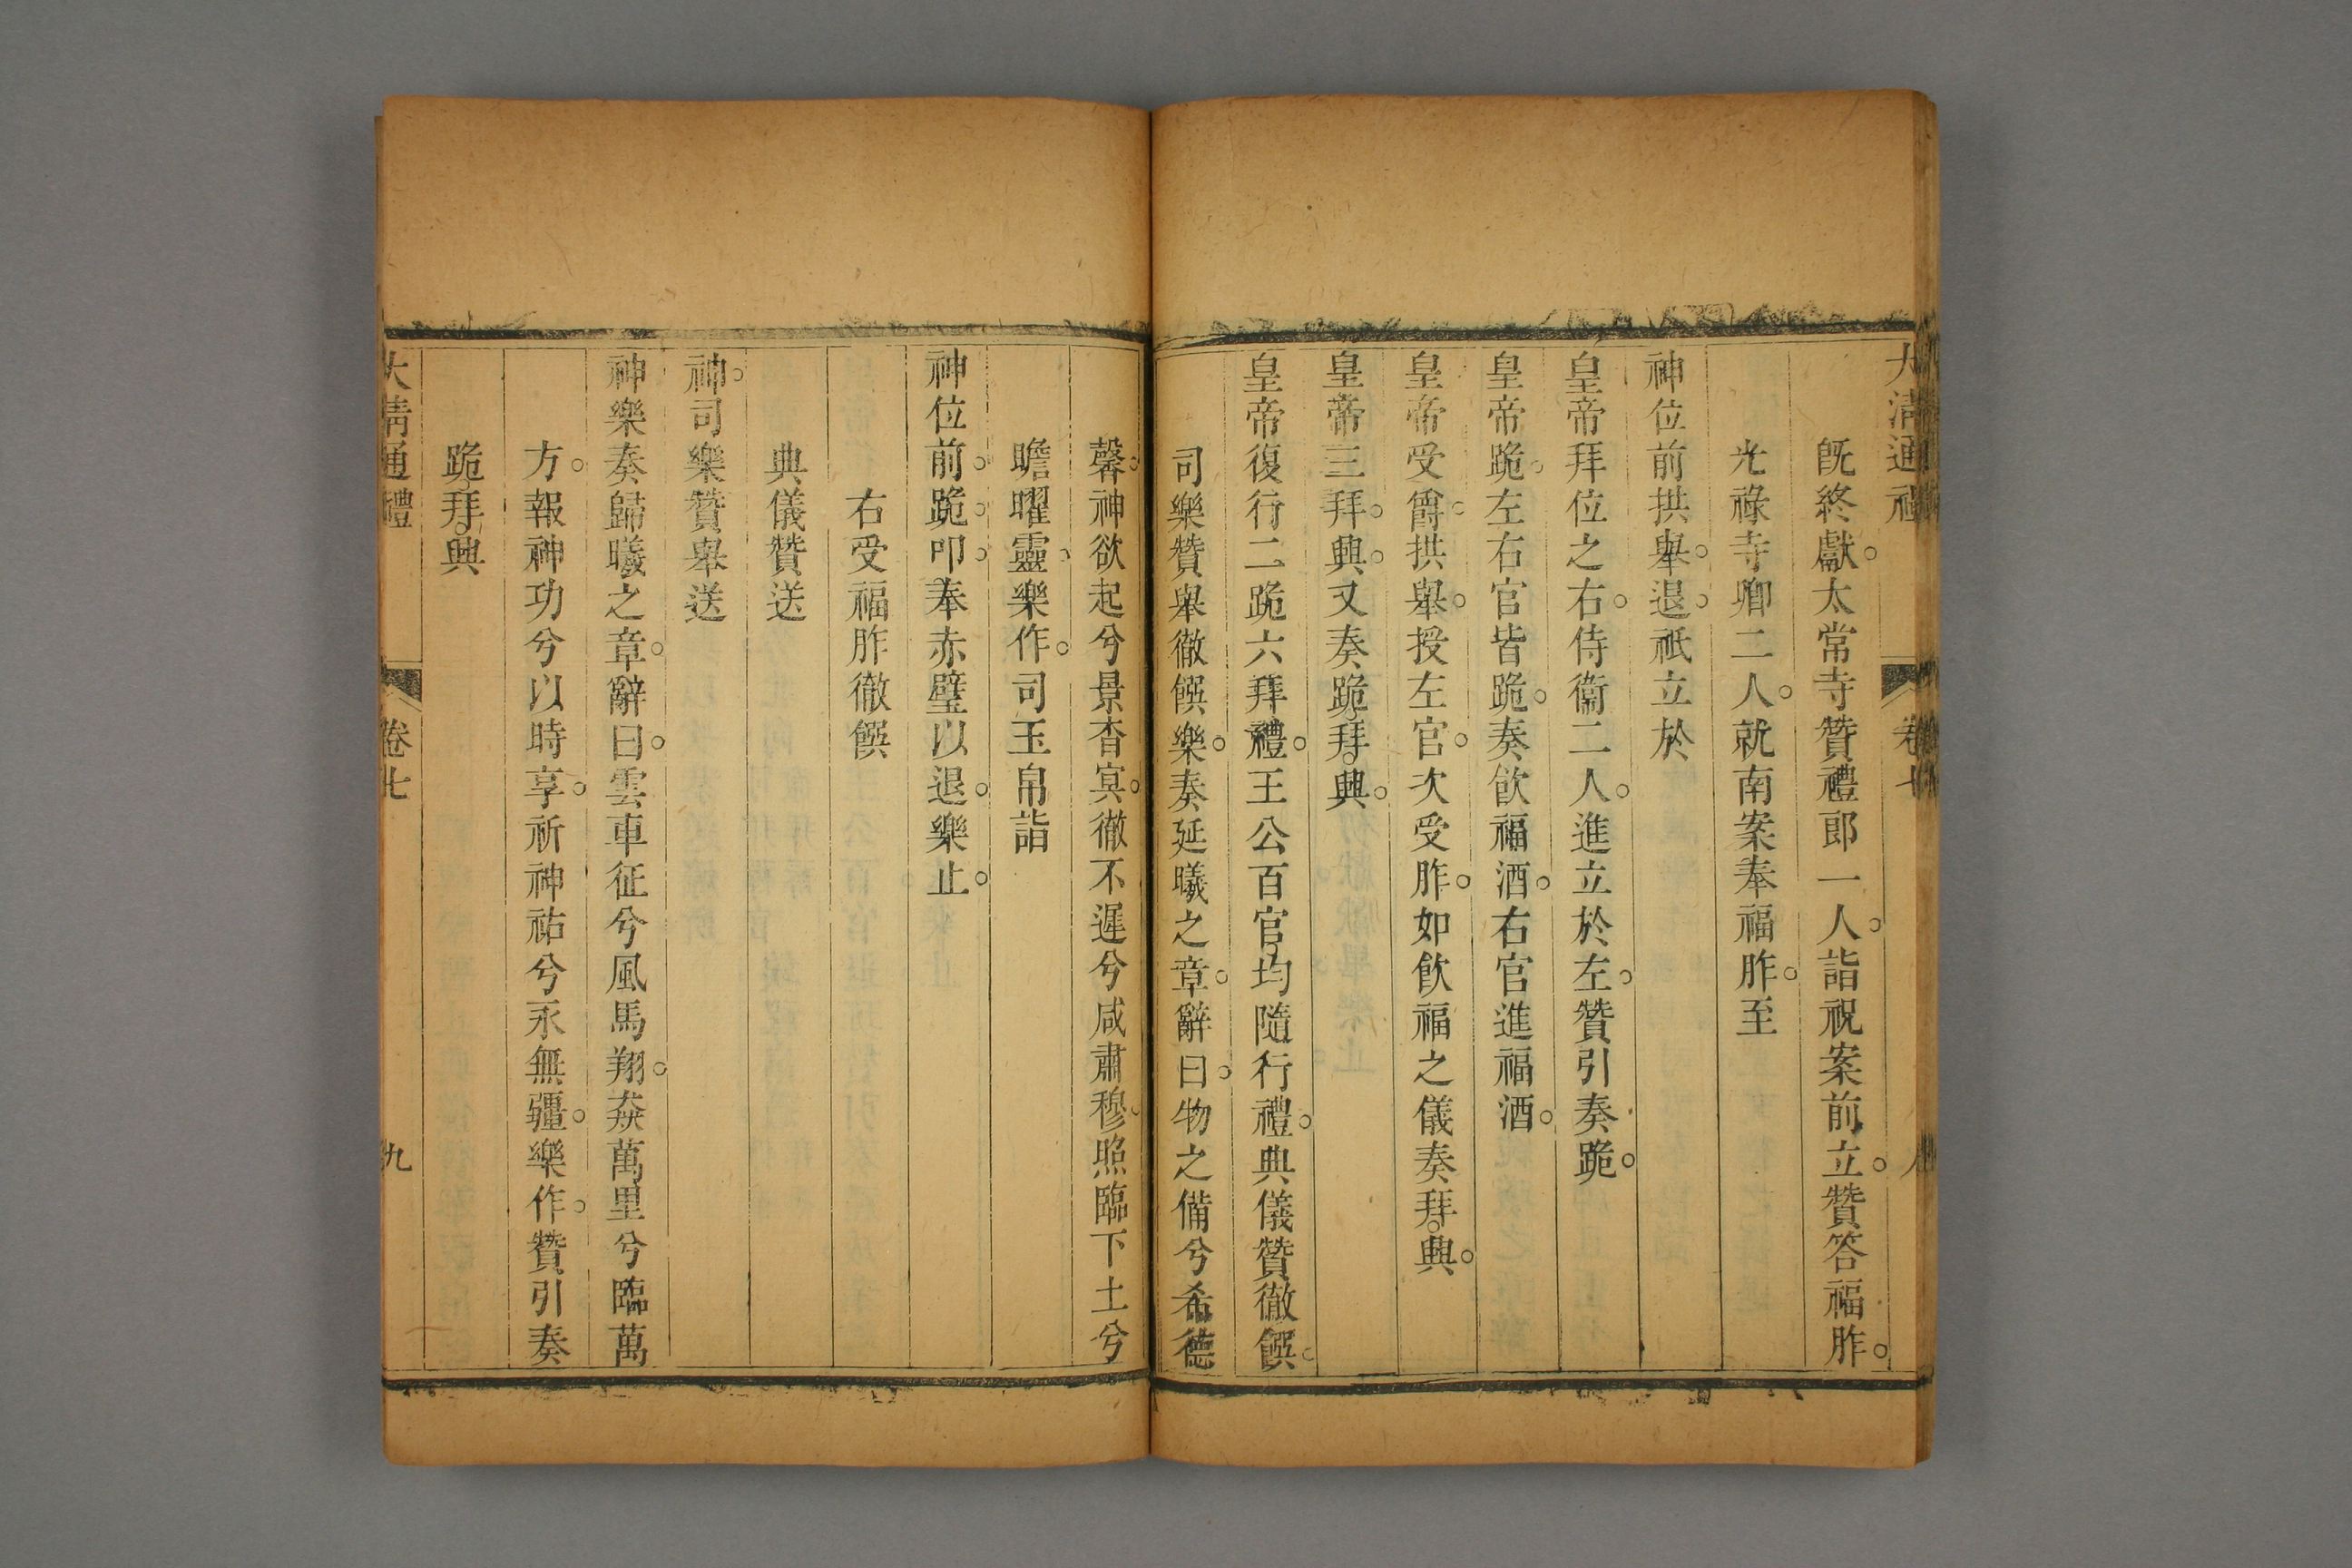 大清通禮 卷七 八
既終獻。太常寺贊禮郎一人。詣祝案前立。贊答福胙。
光祿寺卿二人。就南案奉福胙。至
神位前拱舉。退。祇立於
皇帝拜位之右。侍衞二人。進立於左。贊引奏跪。
皇帝跪。左右官皆跪。奏飲福酒。右官進福酒。
皇帝受爵。拱舉。授左官。次受胙。如飲福之儀奏拜。興。
皇帝三拜。興。又奏跪。拜。興。
皇帝復行二跪六拜禮。王公百官。均隨行禮。典儀贊徹饌。
司樂贊舉徹饌樂。奏延曦之章。辭曰。物之備兮希德
馨。神欲起兮景杳冥。徹不遲兮咸肅穆。照臨下土兮
瞻曜靈。樂作。司玉帛詣
神位前。跪。叩。奉赤璧以退。樂止。
右受福胙徹饌
典儀贊送
神。司樂贊舉送
神樂奏歸曦之章。辭曰。雲車征兮風馬翔。猋萬里兮臨萬
方。報神功兮以時享。祈神祐兮永無疆。樂作。贊引奏
跪。拜。興
大清通禮 卷七 九